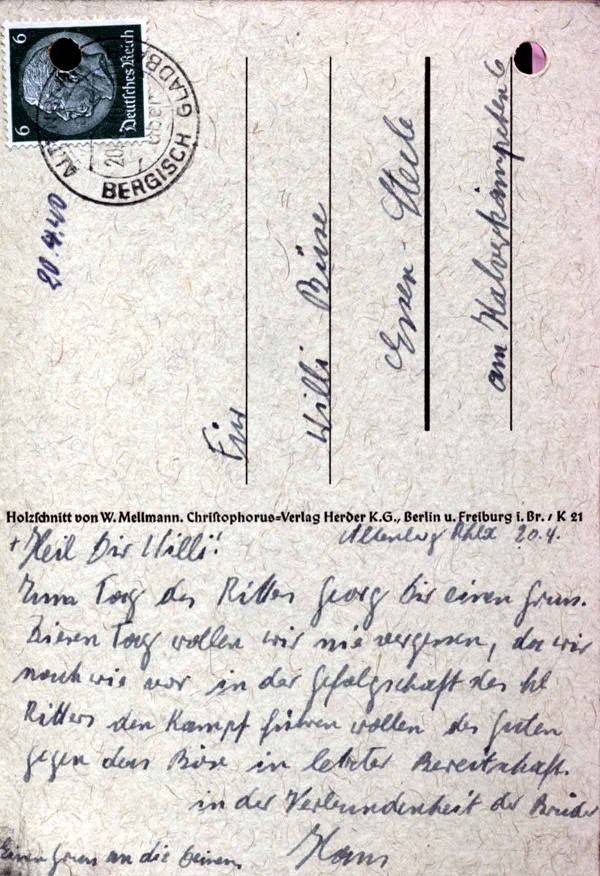 6 Deutsches Reich 6
BERGISCH GLADBA
20.4.40
Willi Büse
Essen-Steele
am Halverkämpchen 6
Holzschnitt von W. Mellmann. Christophorus=Verlag Herder K.G., Berlin u. Freiburg i. Br. / K 21
+ Heil Dir Willi! Altenberg 20.4.
Zum Tag des Ritters Georg Dir einen Gruss.
Diesen Tag wollen wir nie vergessen, da wir
nach wie vor in der Gefolgschaft des hl
Ritters den Kampf führen wollen des Guten
gegen dem Böse in letzter Bereitschaft.
in der Verbundenheit der Brüder
Hans
Einen Gruss an die Deinen